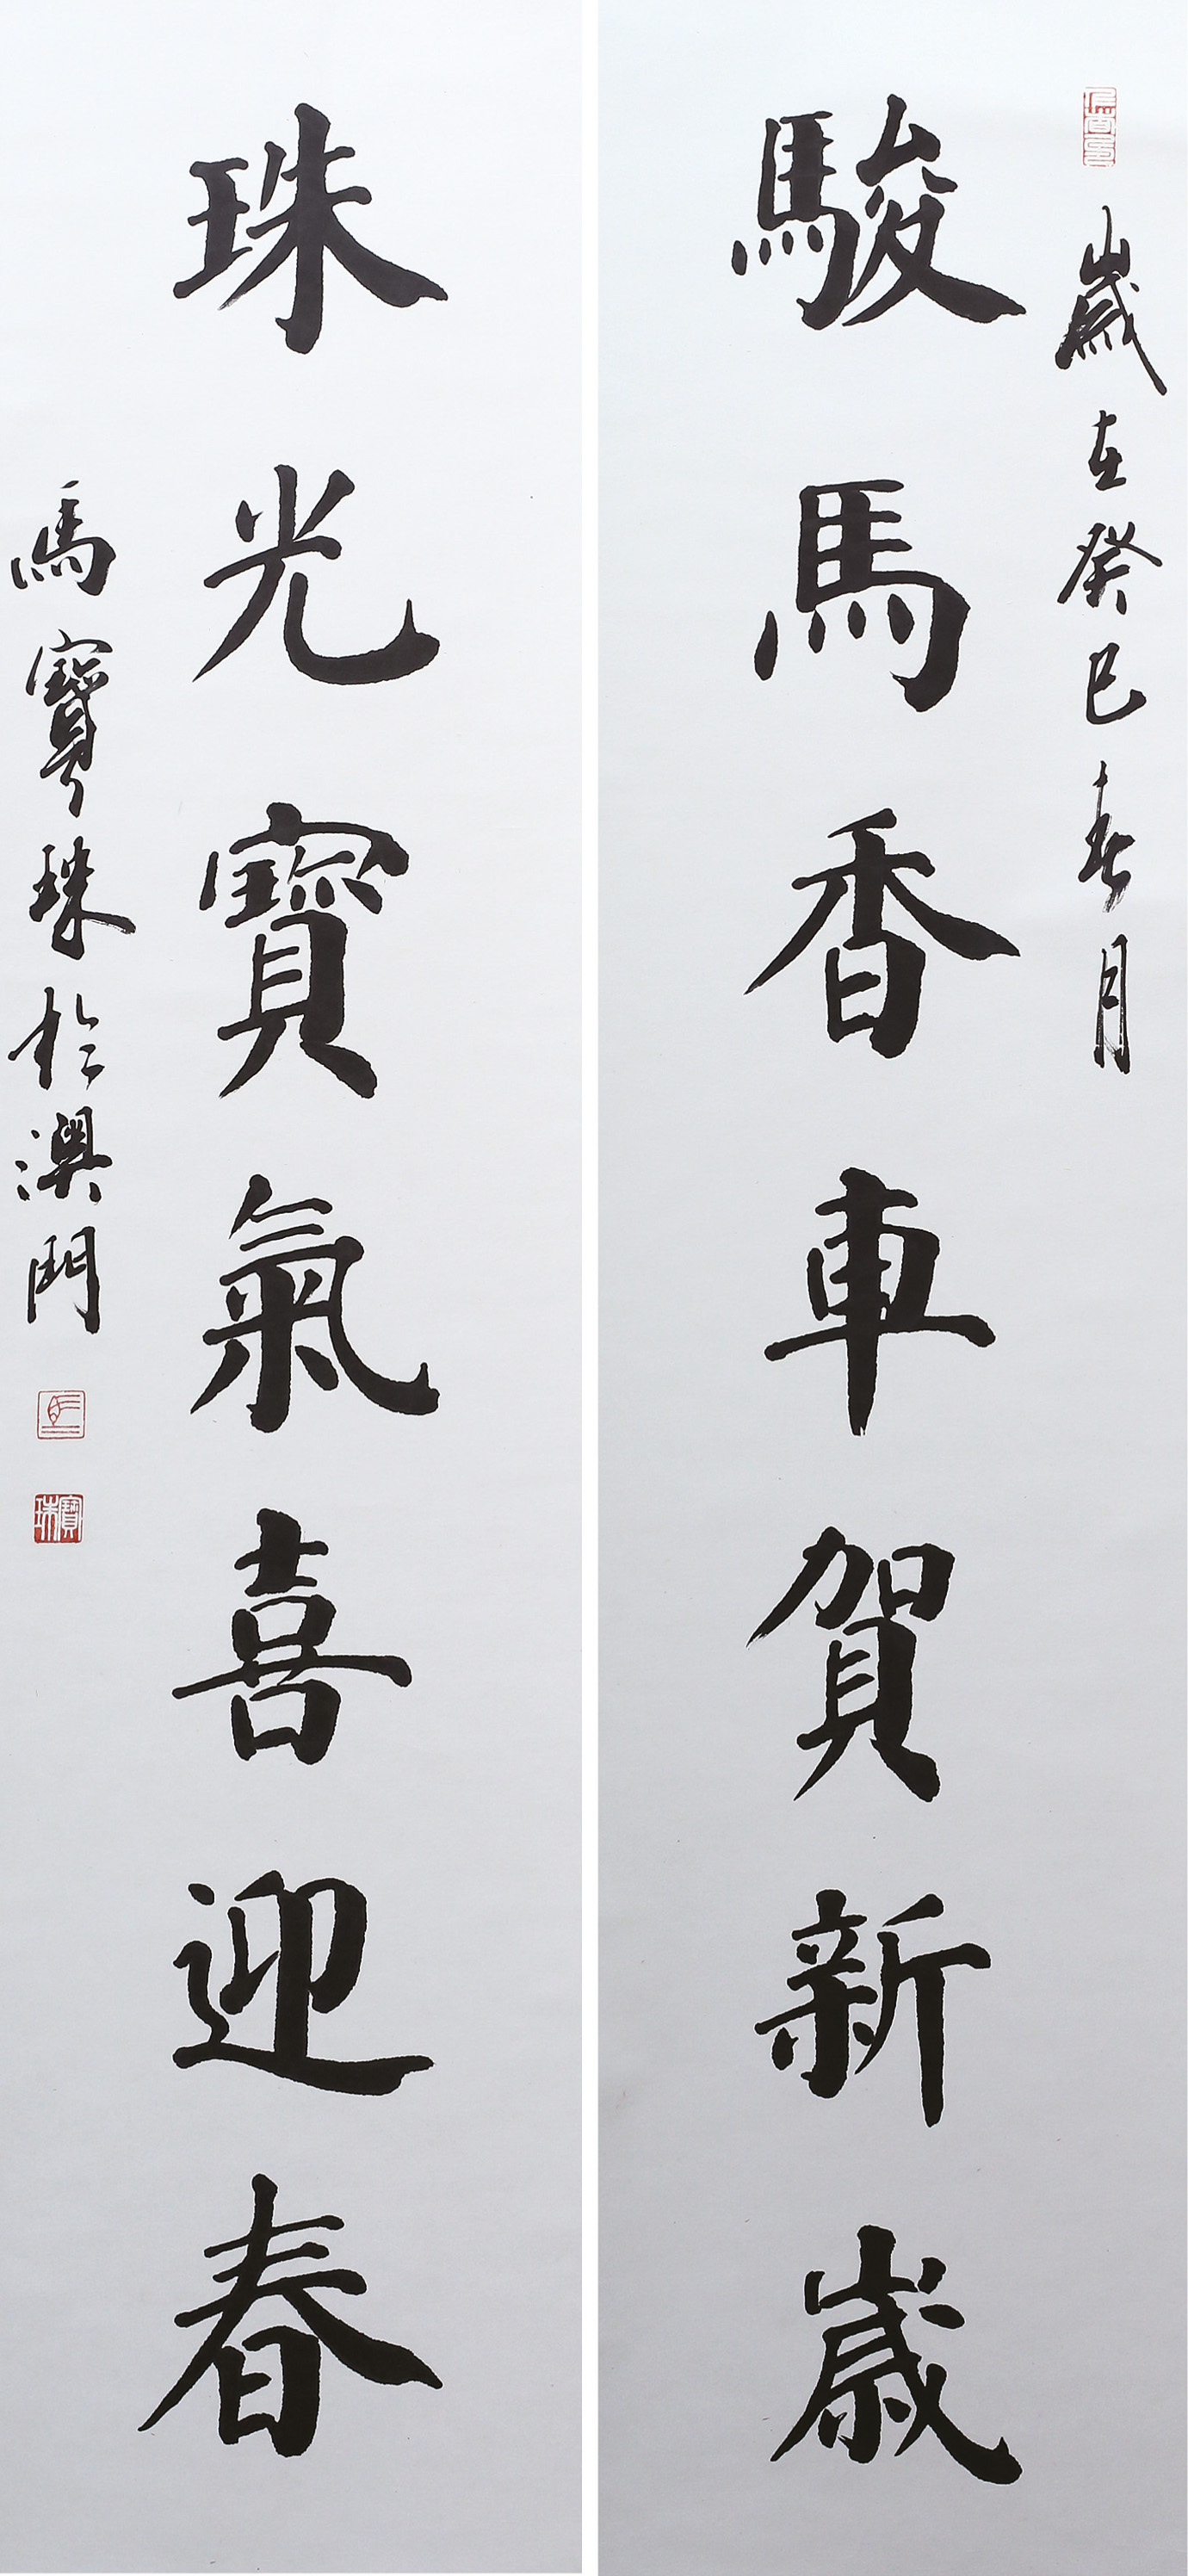 歲在癸巳春月
駿馬香車賀新歲
珠光寶氣喜迎春
馬寶珠於澳門
寶珠